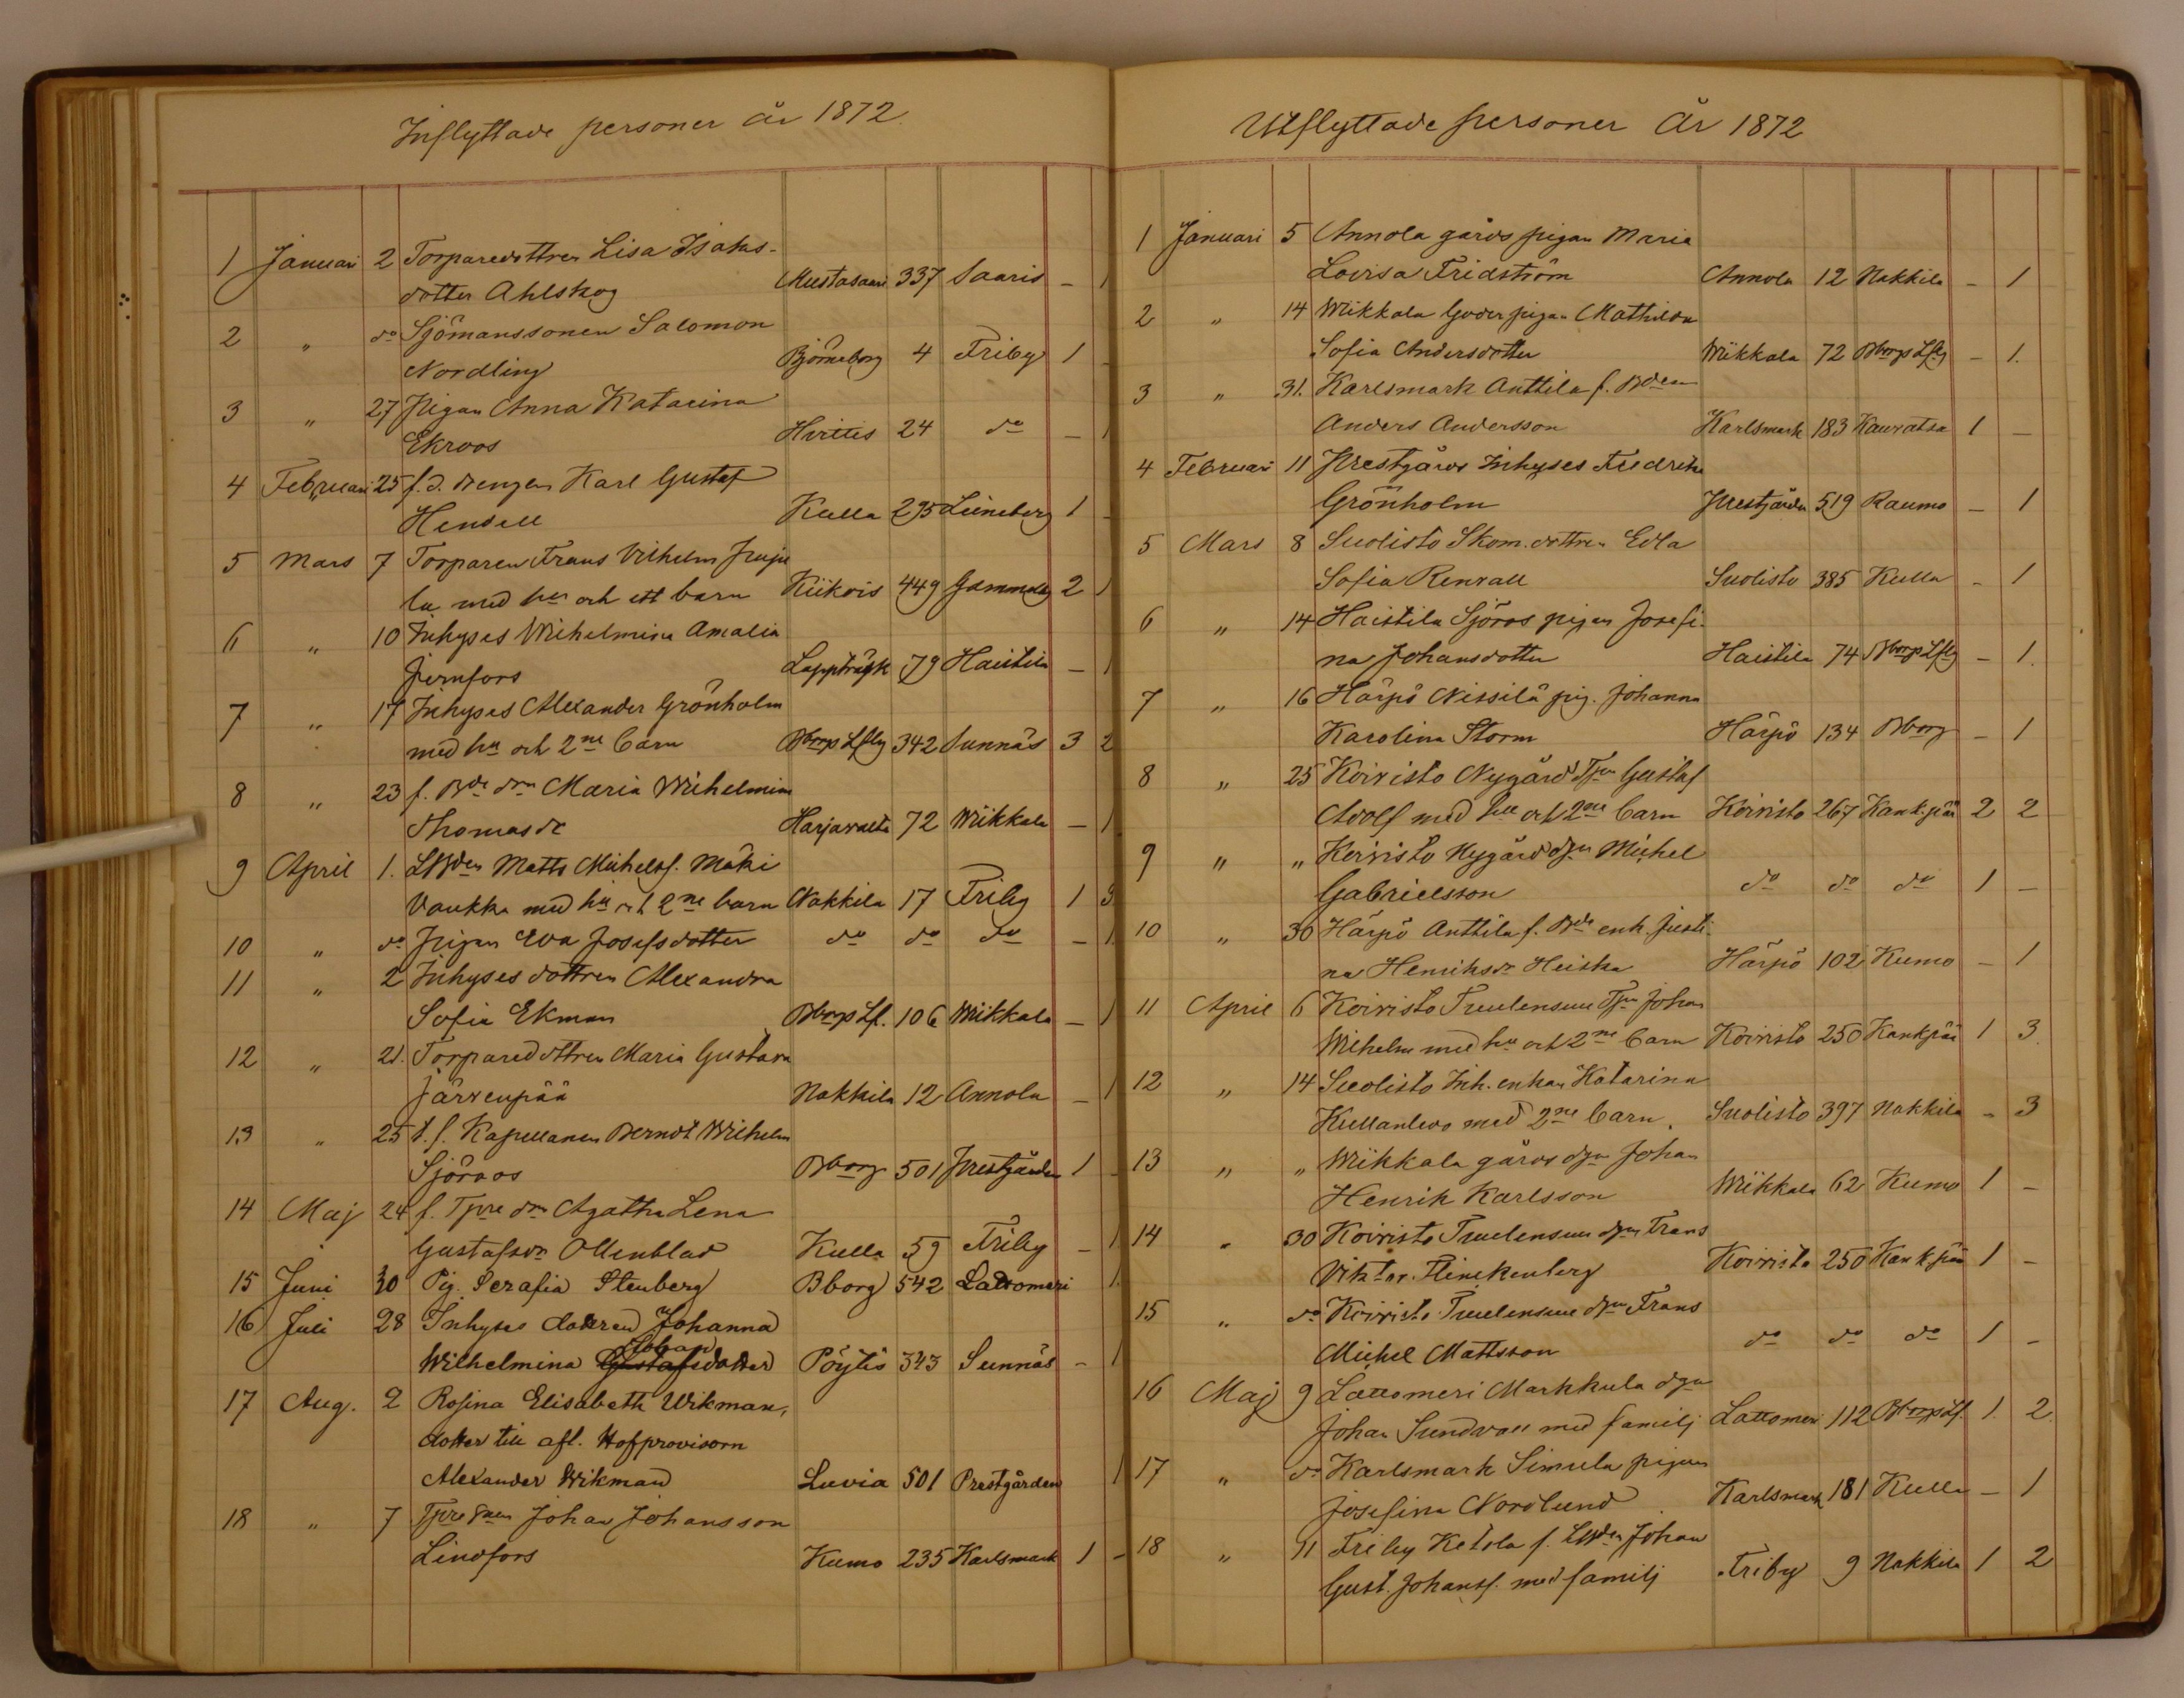 Inflyttade personer år 1872.
1 Januari 2 Torparedottren Lisa Isaks-
dotter Ahlskog Mustasaari 337 Saaris – 1
2 „ do Sjömanssonen Salomon
Nordling Björneborg 4 Friby 1 –
3 „ 27 Pigan Anna Katarina
Ekroos Hvittis 24 do – 1
4 Februari 25 f.d. drengen Karl Gustaf
Hendell Kulla 295 Leineberg 1 –
5 Mars 7 Torparen Frans Vilhelm Juju
la med hu och ett barn Kiikois 449 Gammelby 2 1
6 „ 10 Inhyses Wilhelmina Amalia
Jernfors Lappträsk 79 Haistila – 1
7 „ 17 Inhyses Alexander Grönholm
med hu och 2ne barn Bborgs Lfg 342 Sunnäs 3 2
8 „ 23 f. Bde drn Maria Wilhelmina
Thomasdr Harjavalta 72 Wiikkala – 1
9 April 1. LBden Matts Michelsf. Mäki
Vaukka med hu och 2ne barn Nakkila 17 Friby 1 3
10 „ do Pigan Eva Josefsdotter do do do – 1
11 „ 2 Inhyses dottren Alexandra
Sofia Ekman Bborgs Lf. 106 Wiikkala – 1
12 „ 21. Torparedottren Maria Gustava
Järvenpää Nakkila 12 Annola – 1
13 „ 25 t.f. Kapellanen Berndt Wilhelm
Sjöroos Bborg 501 Prestgården 1 –
14 Maj 24 f. Tpre drn Agatha Lena
Gustafsdr Ollenblad Kulla 59 Friby – 1
15 Juni 30 Pig. Serafia Stenberg Bborg 542 Lattomeri 1
16 Juli 28 Inhyses dottren Johanna
Johan
Wilhelmina Gustafsdotter Pöytis 343 Sunnäs – 1
17 Aug. 2 Rosina Elisabeth Wikman,
dotter till afl. Hofprovisorn
Alexander Wikman Luvia 501 Prestgården 1
18 „ 7 Tpresnen Johan Johansson
Lindfors Kumo 235 Karlsmark 1 –
Utflyttade personer År 1872
1 Januari 5 Annola gårds pigan Maria
Lovisa Fridström Annola 12 Nakkila – 1
2 „ 14 Wiikkala Goder pigan Mathilda
Sofia Andersdotter Wiikkala 72 Bborgs Lfg – 1.
3 „ 31. Karlsmark Anttila f. Bden
Anders Andersson Karlsmark 183 Kauvatsa 1 –
4 Februari 11 Prestgårds Inhyses Fredrika
Grönholm Prestgården 519 Raumo – 1
5 Mars 8 Suolisto Skom. dottren Edla
Sofia Renvall Suolisto 385 Kulla – 1
6 „ 14 Haistila Sjöros pigan Josefi-
na Johansdotter Haistila 74 Bborgs Lfg – 1.
7 „ 16 Härpö Nissilä pig. Johanna
Karolina Storm Härpö 134 Bborg – 1
8 „ 25 Koivisto Nygård Tpn Gustaf
Adolf med hu och 2ne barn Koivisto 267 Kankpää 2 2
9 „ „ Koivisto Nygård dgn Michel
Gabrielsson do do do 1 –
10 „ 30 Härpö Anttila f. Bde enk. Justi
na Henriksdr Heiska Härpö 102 Kumo – 1
11 April 6 Koivisto Tuulensuu Tpn Johan
Wilhelm med hu och 2ne barn Koivisto 250 Kankpää 1 3.
12 „ 14 Suolisto Inh. enkan Katarina
Kullanlevo med 2ne barn. Suolisto 397 Nakkila – 3
13 „ „ Wiikkala gårds dgn Johan
Henrik Karlsson Wiikkala 62 Kumo 1 –
14 „ 30 Koivisto Tuulensuu dgn Frans
Viktor Flinckenberg Koivisto 250 Kankpää 1 –
15 „ do Koivisto Tuulensuu dgn Frans
Michel Mattsson do do do 1 –
16 Maj 9 Lattomeri Markkula dgn
Johan Sundvall med familj Lattomeri 112 Bborgs Lf. 1. 2.
17 „ do Karlsmark Simula pigan
Josefina Nordlund Karlsmark 181 Kulla – 1
18 „ 11 Friby Ketola f. LBden Johan
Gust. Johansf. med familj Friby 9 Nakkila 1 2